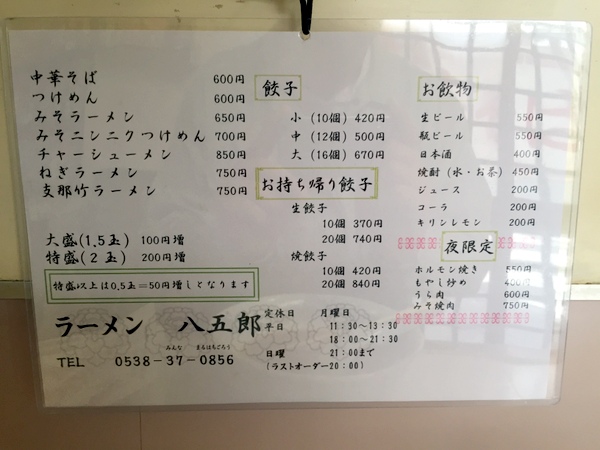 中華そば 600円
つけめん 600円
みそラーメン 650円
みそニンニクつけめん 700円
チャーシューメン 850円
ねぎラーメン 750円
支那竹ラーメン 750円
大盛(1.5玉) 100円増
特盛(2玉) 200円増
特盛以上は0.5玉=50円増しとなります
餃子
小 (10個) 420円
中 (12個) 500円
大 (16個) 670円
お持ち帰り餃子
生餃子
10個 370円
20個 740円
焼餃子
10個 420円
20個 840円
お飲物
生ビール 550円
瓶ビール 550円
日本酒 400円
焼酎(水・お茶) 450円
ジュース 200円
コーラ 200円
キリンレモン 200円
夜限定
ホルモン焼き 550円
もやし炒め
うら肉 600円
みそ焼肉 750円
ラーメン 八五郎
みんな まるはちごろう
TEL 0538-37-0856
定休日 月曜日
平日 11:30~13:30
18:00~21:30
日曜 21:00まで
(ラストオーダー20:00)